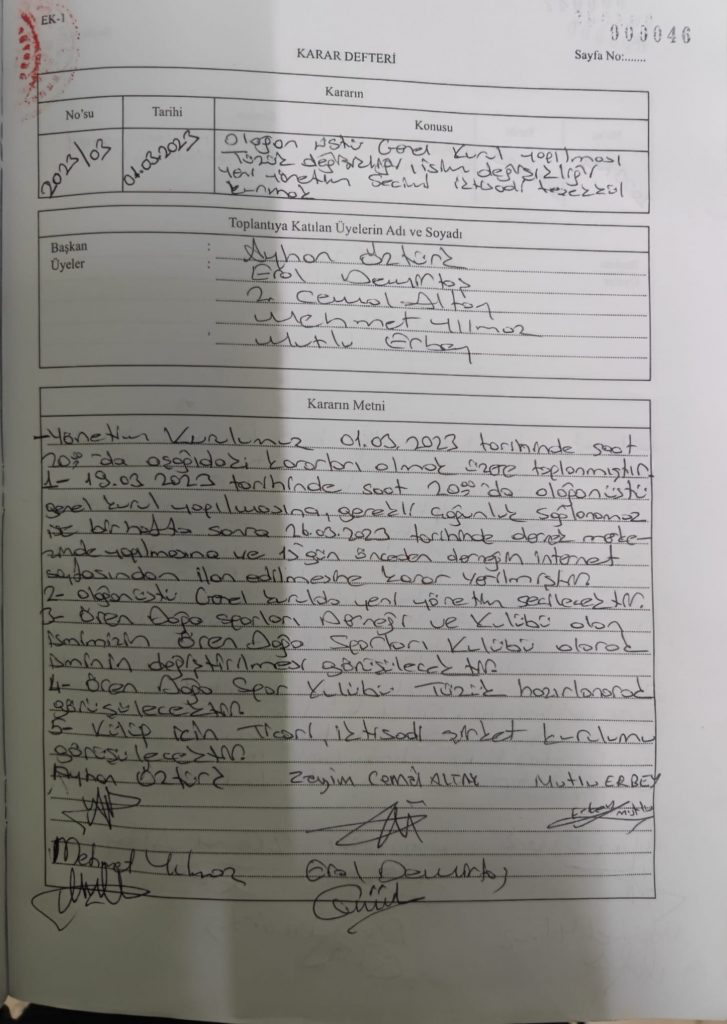 EK-1
000046
KARAR DEFTERİ
Sayfa No:.......
Kararın
No'su
Tarihi
Konusu
2023/03
01.03.2023
Olağan üstü Genel Kurul yapılması
Tüzük değişikliği, isim değişikliği
yeni yönetim seçimi iktisadi teşekkül
kurmak
Toplantıya Katılan Üyelerin Adı ve Soyadı
Başkan : Ayhan Öztürk
Üyeler : Erol Demirtaş
Z. Cemal Altay
Mehmet Yılmaz
Mutlu Erbey
Kararın Metni
-Yönetim Kurulumuz 01.03.2023 tarihinde saat
20:00'da aşağıdaki kararları almak üzere toplanmıştır.
1- 19.03.2023 tarihinde saat 20:00'da olağanüstü
genel kurul yapılmasına, gerekli çoğunluk sağlanamaz
ise bir hafta sonra 26.03.2023 tarihinde dernek merke-
zinde yapılmasına ve 15 gün önceden derneğin internet
sayfasından ilan edilmesine karar verilmiştir.
2- olağanüstü Genel kurulda yeni yönetim seçilecektir.
3- Ören Doğa Sporları Derneği ve Kulübü olan
ismimizin Ören Doğa Sporları Kulübü olarak
isminin değiştirilmesi görüşülecektir.
4- Ören Doğa Spor Kulübü Tüzük hazırlanarak
görüşülecektir.
5- Kulüp için Ticari, iktisadi şirket kurulumu
görüşülecektir.
Ayhan Öztürk Zeyim Cemal ALTAY Mutlu ERBEY
Erbey Mutlu
Mehmet Yılmaz Erol Demirtaş